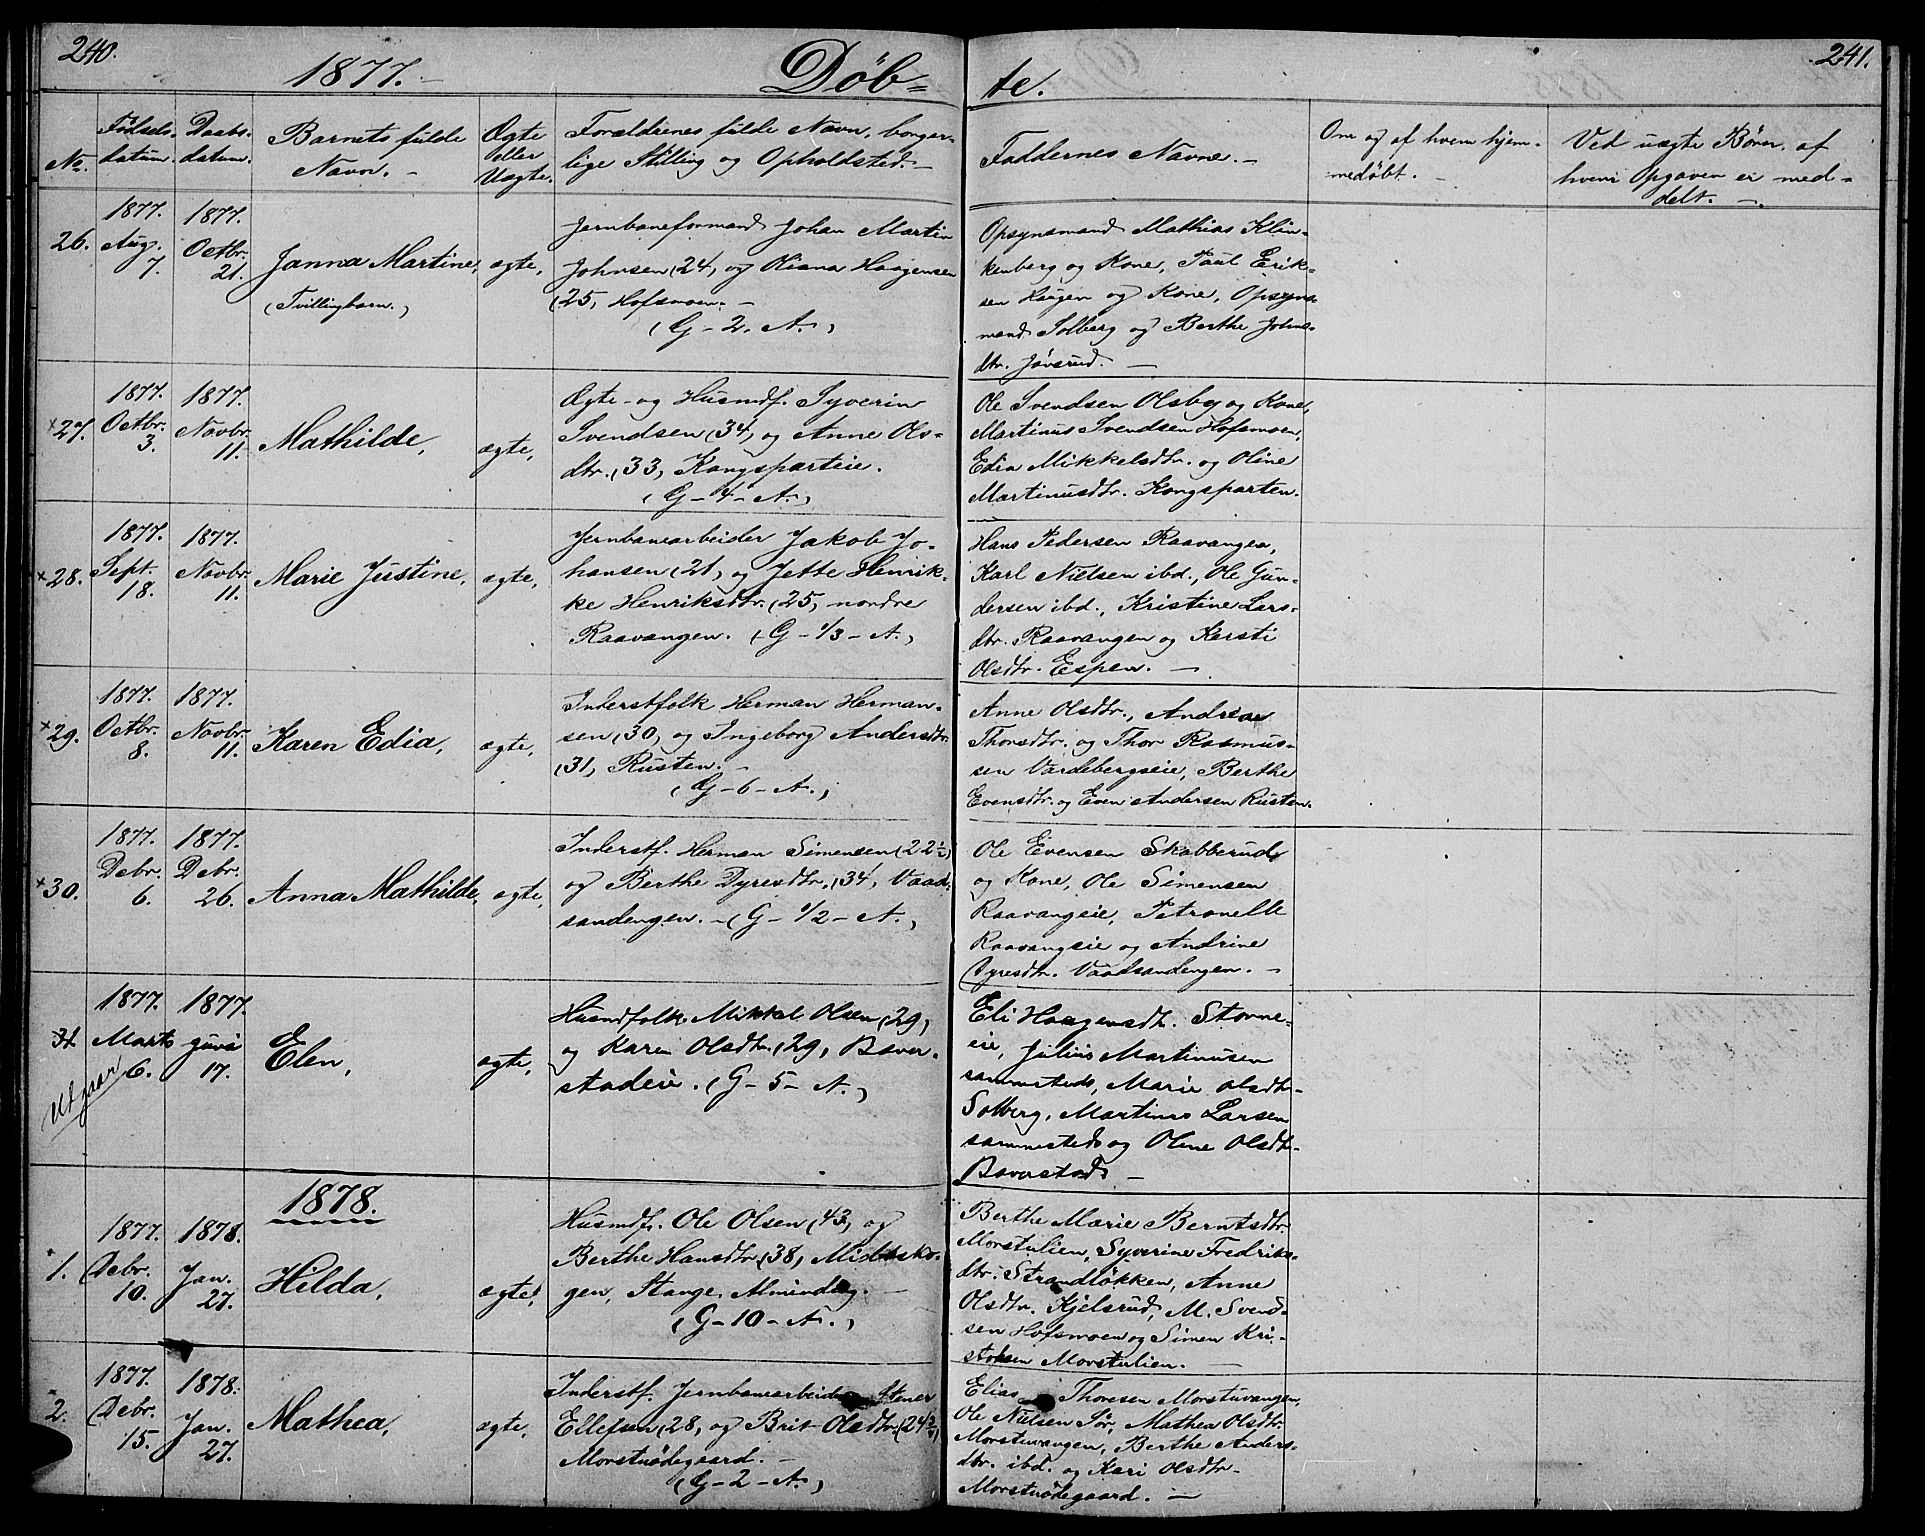 240.
1877.
Døb-
te.
241.
No.
Fødsels-
datum.
Daabs-
datum.
Barnets fulde
Navn. -
Ægte
eller
Uægte.
Forældrenes fulde Navn, borger-
lige Stilling og Opholdsted. -
Faddernes Navne. -
Om og af hvem hjem-
medøbt. -
Ved uægte Børn, af
hvem Opgaven er med-
delt. -
26.
1877.
Aug.
7.
1877.
Octbr.
21.
Janna Martine,
(Tvillingbarn.)
ægte,
Jernbaneformand Johan Martin
Johnsen (24) og Oliana Haagensen
(25) Hofsmoen. -
(G - 2. A.)
Opsynsmand Mathias Klin-
kenberg og Kone, Paul Erik-
sen Haugen og Kone, Opsyns-
mand Solberg og Berthe Johns-
dtr. Jøvsrud. -
×27.
1877.
Octbr.
3.
1877.
Novbr.
11.
Mathilde,
ægte,
Ægte- og Husmdf. Syverin
Svendsen (34) og Anne Ols-
dtr. (33) Kongsparteie.
(G - 4 - A.)
Ole Svendsen Olsby og Kone,
Martinus Svendsen Hofsmoen,
Edia Mikkelsdtr. og Oline
Martinusdtr. Kongsparten.
×28.
1877.
Sept.
18.
1877.
Novbr.
11.
Marie Justine,
ægte,
Jernbanearbeider Jakob Jo-
hansen (21) og Jette Henrik-
ke Henriksdtr. (25) nordre
Raavangen. (G - 1/3 - A.)
Hans Pedersen Raavangen,
Karl Nielsen ibd., Ole Gun-
dersen ibd., Kristine Lars-
dtr. Raavangen og Kersti
Olsdtr. Espen. -
×29.
1877.
Octbr.
8.
1877.
Novbr.
11.
Karen Edia,
ægte,
Inderstfolk Herman Herman-
sen (30) og Ingeborg Andersdtr.
(31) Rusten. -
(G - 6 - A.)
Anne Olsdtr., Andrea
Thorsdtr. og Thor Rasmus-
sen Vardebergseie, Berthe
Evensdtr. og Even Andersen Rusten.
×30.
1877.
Debr.
6.
1877.
Debr.
26.
Anna Mathilde,
ægte,
Inderstf. Herman Simensen (22 1/2)
og Berthe Dyresdtr. (34) Vaad-
sandengen. - (G - 1/2 - A.)
Ole Evensen Skabberud
og Kone, Ole Simensen
Raavangeie, Petronelle
Raavangeie og Andrine
Dyresdtr. Vaadsandengen. -
31
Utgaar
1877.
Marts
6.
1877.
juni
17.
Elen,
ægte,
Husmdfolk. Mikkel Olsen (29)
og Karen Olsdtr. (29) Baver-
stadeie. (G - 5 - A.)
Eli Haagensdtr. Storne-
eie, Julius Martinusen
sammesteds, Marie Olsdtr.
Solberg, Martinus Larsen
sammesteds og Oline Olsdtr.
Baverstad -
1878.
1.
1877.
Debr.
10.
1878.
Jan.
27.
Hilda,
ægte,
Husmdf. Ole Olsen (43) og
Berthe Hansdtr. (38) Midtsko-
gen, Stange Alminding. -
(G - 10 - A.)
Berthe Marie Berntsdtr.
Morstulien, Syverine Fredriks-
dtr. Strandløkken, Anne
Olsdtr. Kjelsrud, M. Svend-
sen Hofsmoen og Simen Kri-
stofsen Morstulien. -
2.
1877.
Debr.
15.
1878.
Jan.
27.
Mathea,
ægte,
Inderstf. Jernbanearbeider Stener
Ellefsen (28) og Brit Olsdtr. (24 2/4)
Morstuødegaard. -
(G - 2 - A.)
Elias Thoresen Morstuvangen,
Ole Nielsen Sør, Mathea Olsdtr.
Morstuvangen, Berthe Anders-
dtr. ibd. og Kari Olsdtr.
Morstuødegaard. -